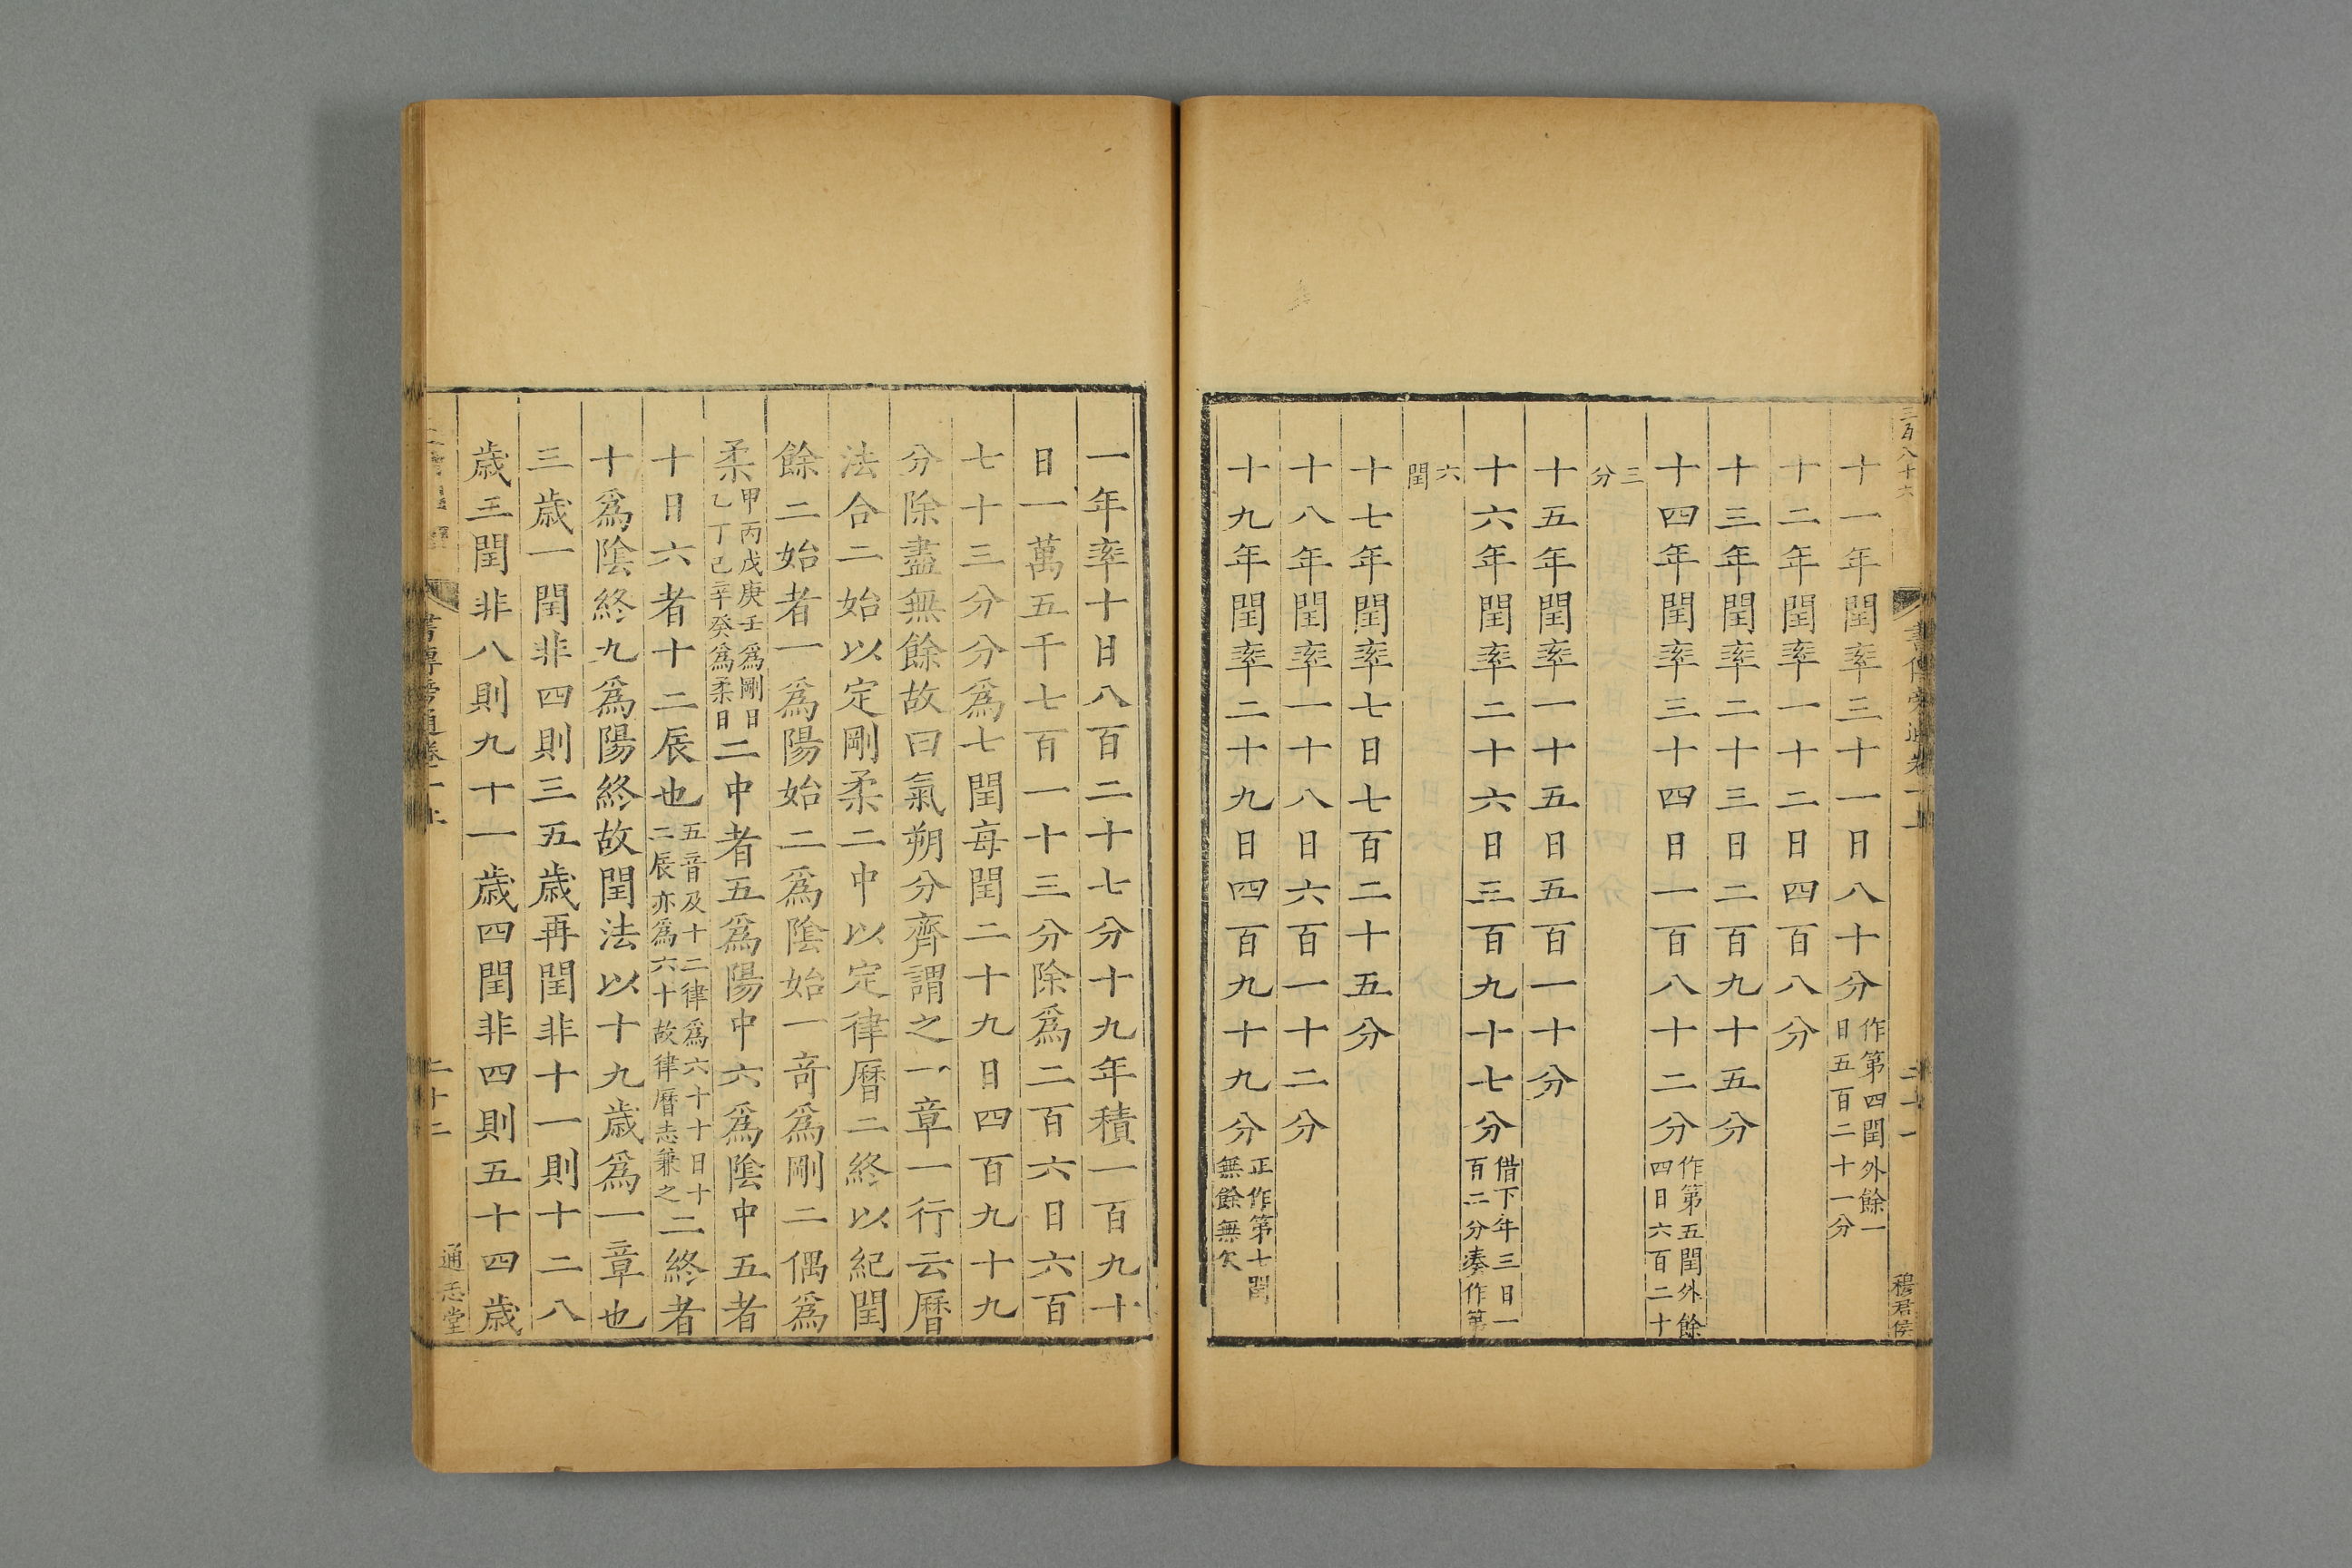 三百八十六
書傳旁通卷一上
二十一
穆君侯
十一年閏率三十一日八十分作第四閏外餘一日五百二十一分
十二年閏率一十二日四百八分
十三年閏率二十三日二百九十五分
十四年閏率三十四日一百八十二分作第五閏外餘四日六百二十
三分
十五年閏率一十五日五百一十分
十六年閏率二十六日三百九十七分借下年三日一百二分湊作第
六閏
十七年閏率七日七百二十五分
十八年閏率一十八日六百一十二分
十九年閏率二十九日四百九十九分正作第七閏無餘無欠
一年率十日八百二十七分十九年積一百九十
日一萬五千七百一十三分除爲二百六日六百
七十三分分爲七閏每閏二十九日四百九十九
分除盡無餘故曰氣朔分齊謂之一章一行云曆
法合二始以定剛柔二中以定律曆二終以紀閏
餘二始者一爲陽始二爲陰始一奇爲剛二偶爲
柔甲丙戊庚壬爲剛日乙丁己辛癸爲柔日二中者五爲陽中六爲陰中五者
十日六者十二辰也五音及十二律爲六十十日十二辰亦爲六十故律曆志兼之二終者
十爲陰終九爲陽終故閏法以十九歲爲一章也
三歲一閏非四則三五歲再閏非十一則十二八
歲三閏非八則九十一歲四閏非四則五十四歲
書傳旁通卷一上
二十二
通志堂